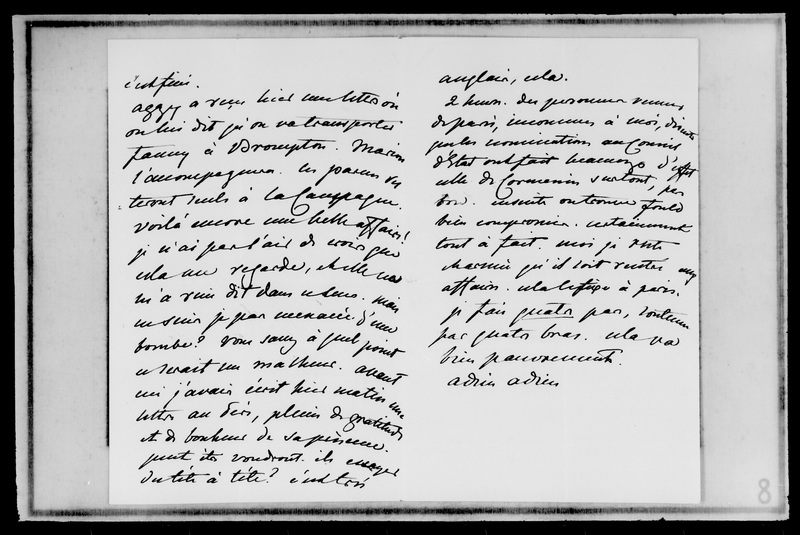 c'est fini.
aggy a reçu hier une lettre où
on lui dit qu'on va transporter
fanny à Brompton. Marion
l'accompagnera. les parens res
teront seuls à la Campagne.
Voilà encore une belle affaire!
je n'ai pas l'air de croire que
cela me regarde, et elle ne
m'a rien dit dans ce sens. mais
ne suis je pas menacée d'une
bombe? Vous savez à quel point
ce serait un malheur. avant
j'avais écrit hier matin une
lettre au dépit, pleine de gratitude
et de bonheur de sa présence.
peut être voudront ils essayer
du tête à tête? c'est très
anglais, cela.
2 heures. des personnes venues
de paris, inconnues à moi, disent
que les nominations au Conseil
d'État ont fait beaucoup d'effet
celle de Cormenin surtout, pas
bon. ensuite on trouve fould
bien compromis. certainement
tout à fait. moi je suis
charmée qu'il soit rentré aux
affaires. cela le fixe à paris.
je fais quatre pas, soutenue
par quatre bras. cela va
bien pauvrement.
adieu adieu
8